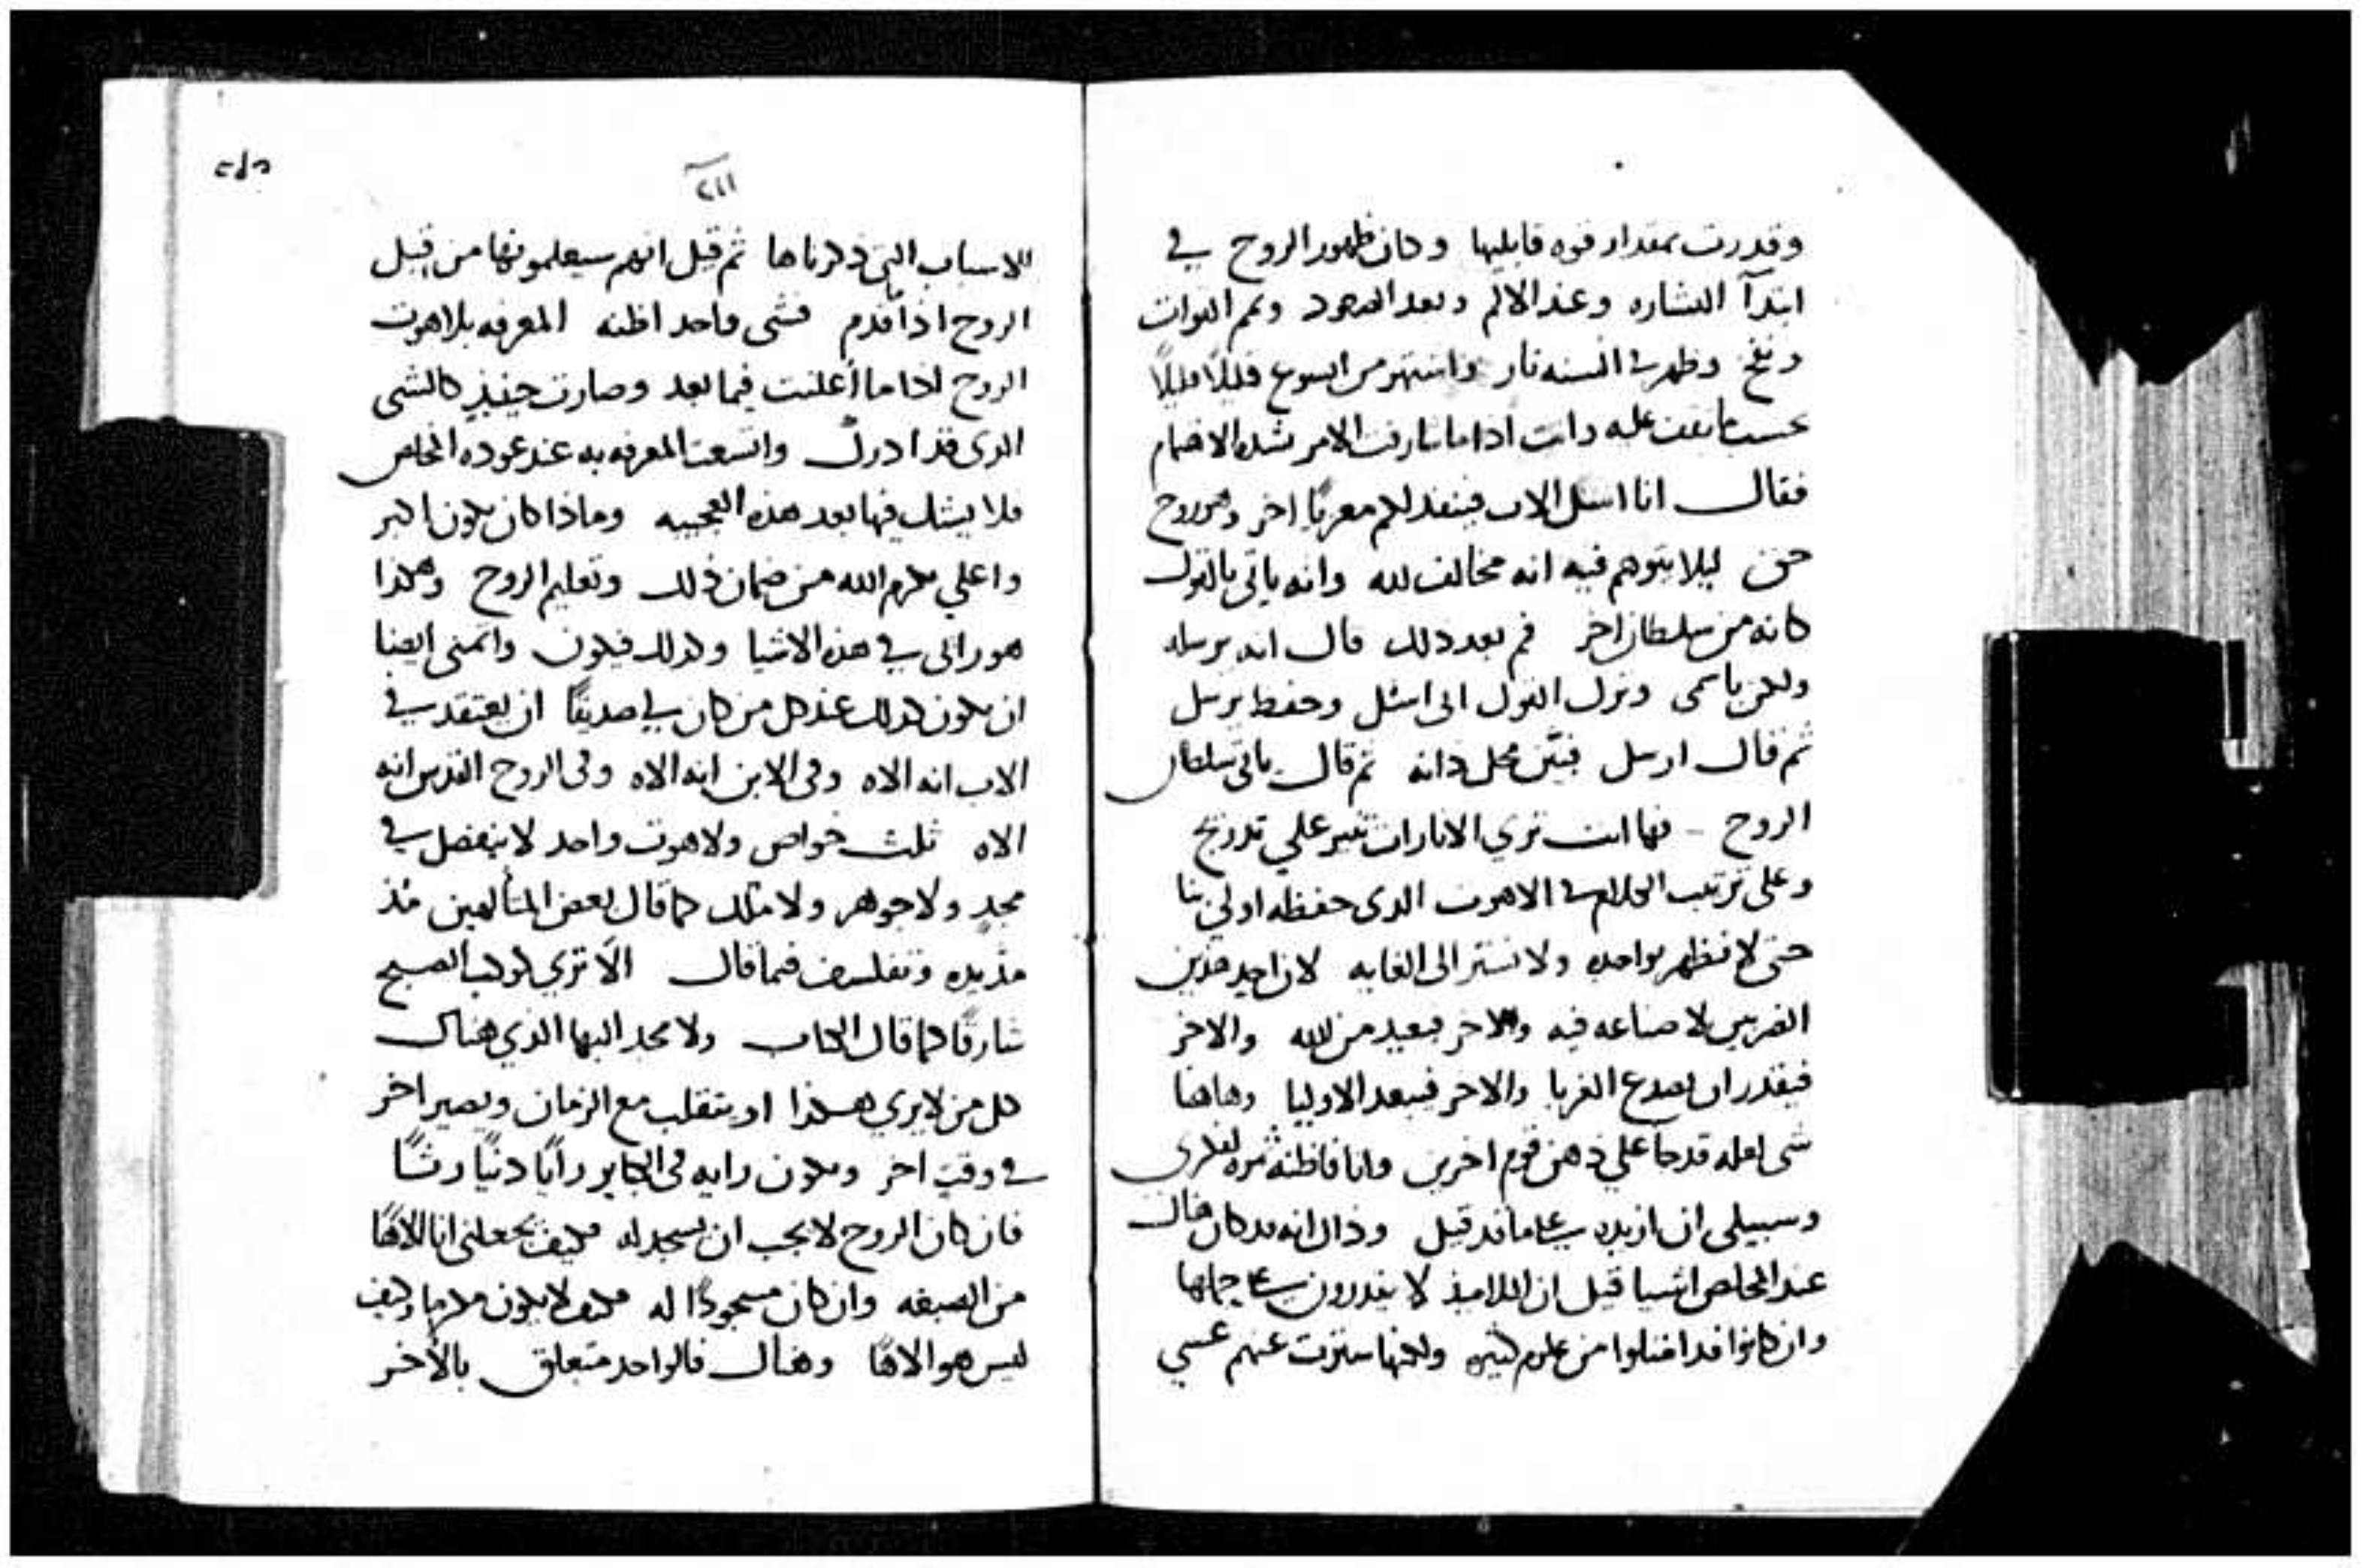 وقدرت بمقدار قوه قابليها وكان ظهور الروح في
ابتدآ البشاره وعند الالام وبعد الصعود وتمم القوات
ونفخ وظهر في السنه نار واشتهر من ايسوع قليلًا قليلًا
عليه وانت اذا ما الامر
فقال انا اسل الاب فينفد لكم معزيًا اخر وهو روح
حق ليلا يتوهم فيه انه مخالف لله وانه ياتى بالقول
كانه من سلطان اخر ثم بعد ذلك قال انه يرسله
ولكن باسمى وترك القول انى اسئل وحفظ يرسل
ثم قال ارسل فبيّن محل ذاته ثم قال ياتى سلطان
الروح فها انت تري الانارات تنير علي تدريج
وعلى ترتيب الكلام في الاهوت الدى حفظه اولي بنا
حتى لا نظهر بواحده ولا نستر الى الغايه لان احد هذين
الفريقين لا صناعه فيه والاخر بعيد من الله والاخر
فيقدر ان يصدع الغربا والاخر فيبعد الاوليا وهاهنا
شى لعله قد جا علي ذهن قوم اخرين وانا فاظنه ثمره لفكرى
وسبيلى ان ازيده على ما قد قيل وذاك انه قد كان هناك
عند المخلص اشيا قيل ان التلاميذ لا يقدرون على حملها
وان كانوا قد امتلوا من علوم كثيره ولكنها سترت عنهم عسي
٢١١
للاسباب التى ذكرناها ثم قيل انهم سيعلمونها من قِبل
الروح اذا قدم فشى واحد اظنه المعرفه بلاهوت
الروح اذا ما أعلنت فيما بعد وصارت حينيذٍ كالشى
الدى قد ادرك واتسعت المعرفه به عند عوده المخلص
فلا يشك فيها بعد هذه العجيبه وماذا كان يكون اكبر
واعلي بكرم الله من ضمان ذلك وتعليم الروح وهكذا
هو رائى في هذه الاشيا وكدلك فيكون واتمنى ايضا
ان يكون كدلك عند كل من كان لي صديقًا ان يعتقد في
الاب انه الاه وفى الابن انه الاه وفى الروح القدس انه
الاه ثلث خواص ولاهوت واحد لا ينفصل في
مجدٍ ولا جوهر ولا ملك كما قال بعض المتألهين مُذ
مذيده وتفلسف فما قال الّا تري كوكب الصبح
شارقًا كما قال الكتاب ولا مجد البها الذي هناك
كل من لا يري هكذا او ينقلب مع الزمان ويصير اخر
في وقتٍ اخر ويكون رايه فى الكباير رأيًا دنيًا رثًا
فان كان الروح لا يجب ان يسجد له فكيف يجعلنى انا الاهًا
من الصبغه وان كان مسجودًا له فكيف لا يكون مكرمًا وكيف
ليس هو الاهًا وهناك فالواحد متعلق بالأخر